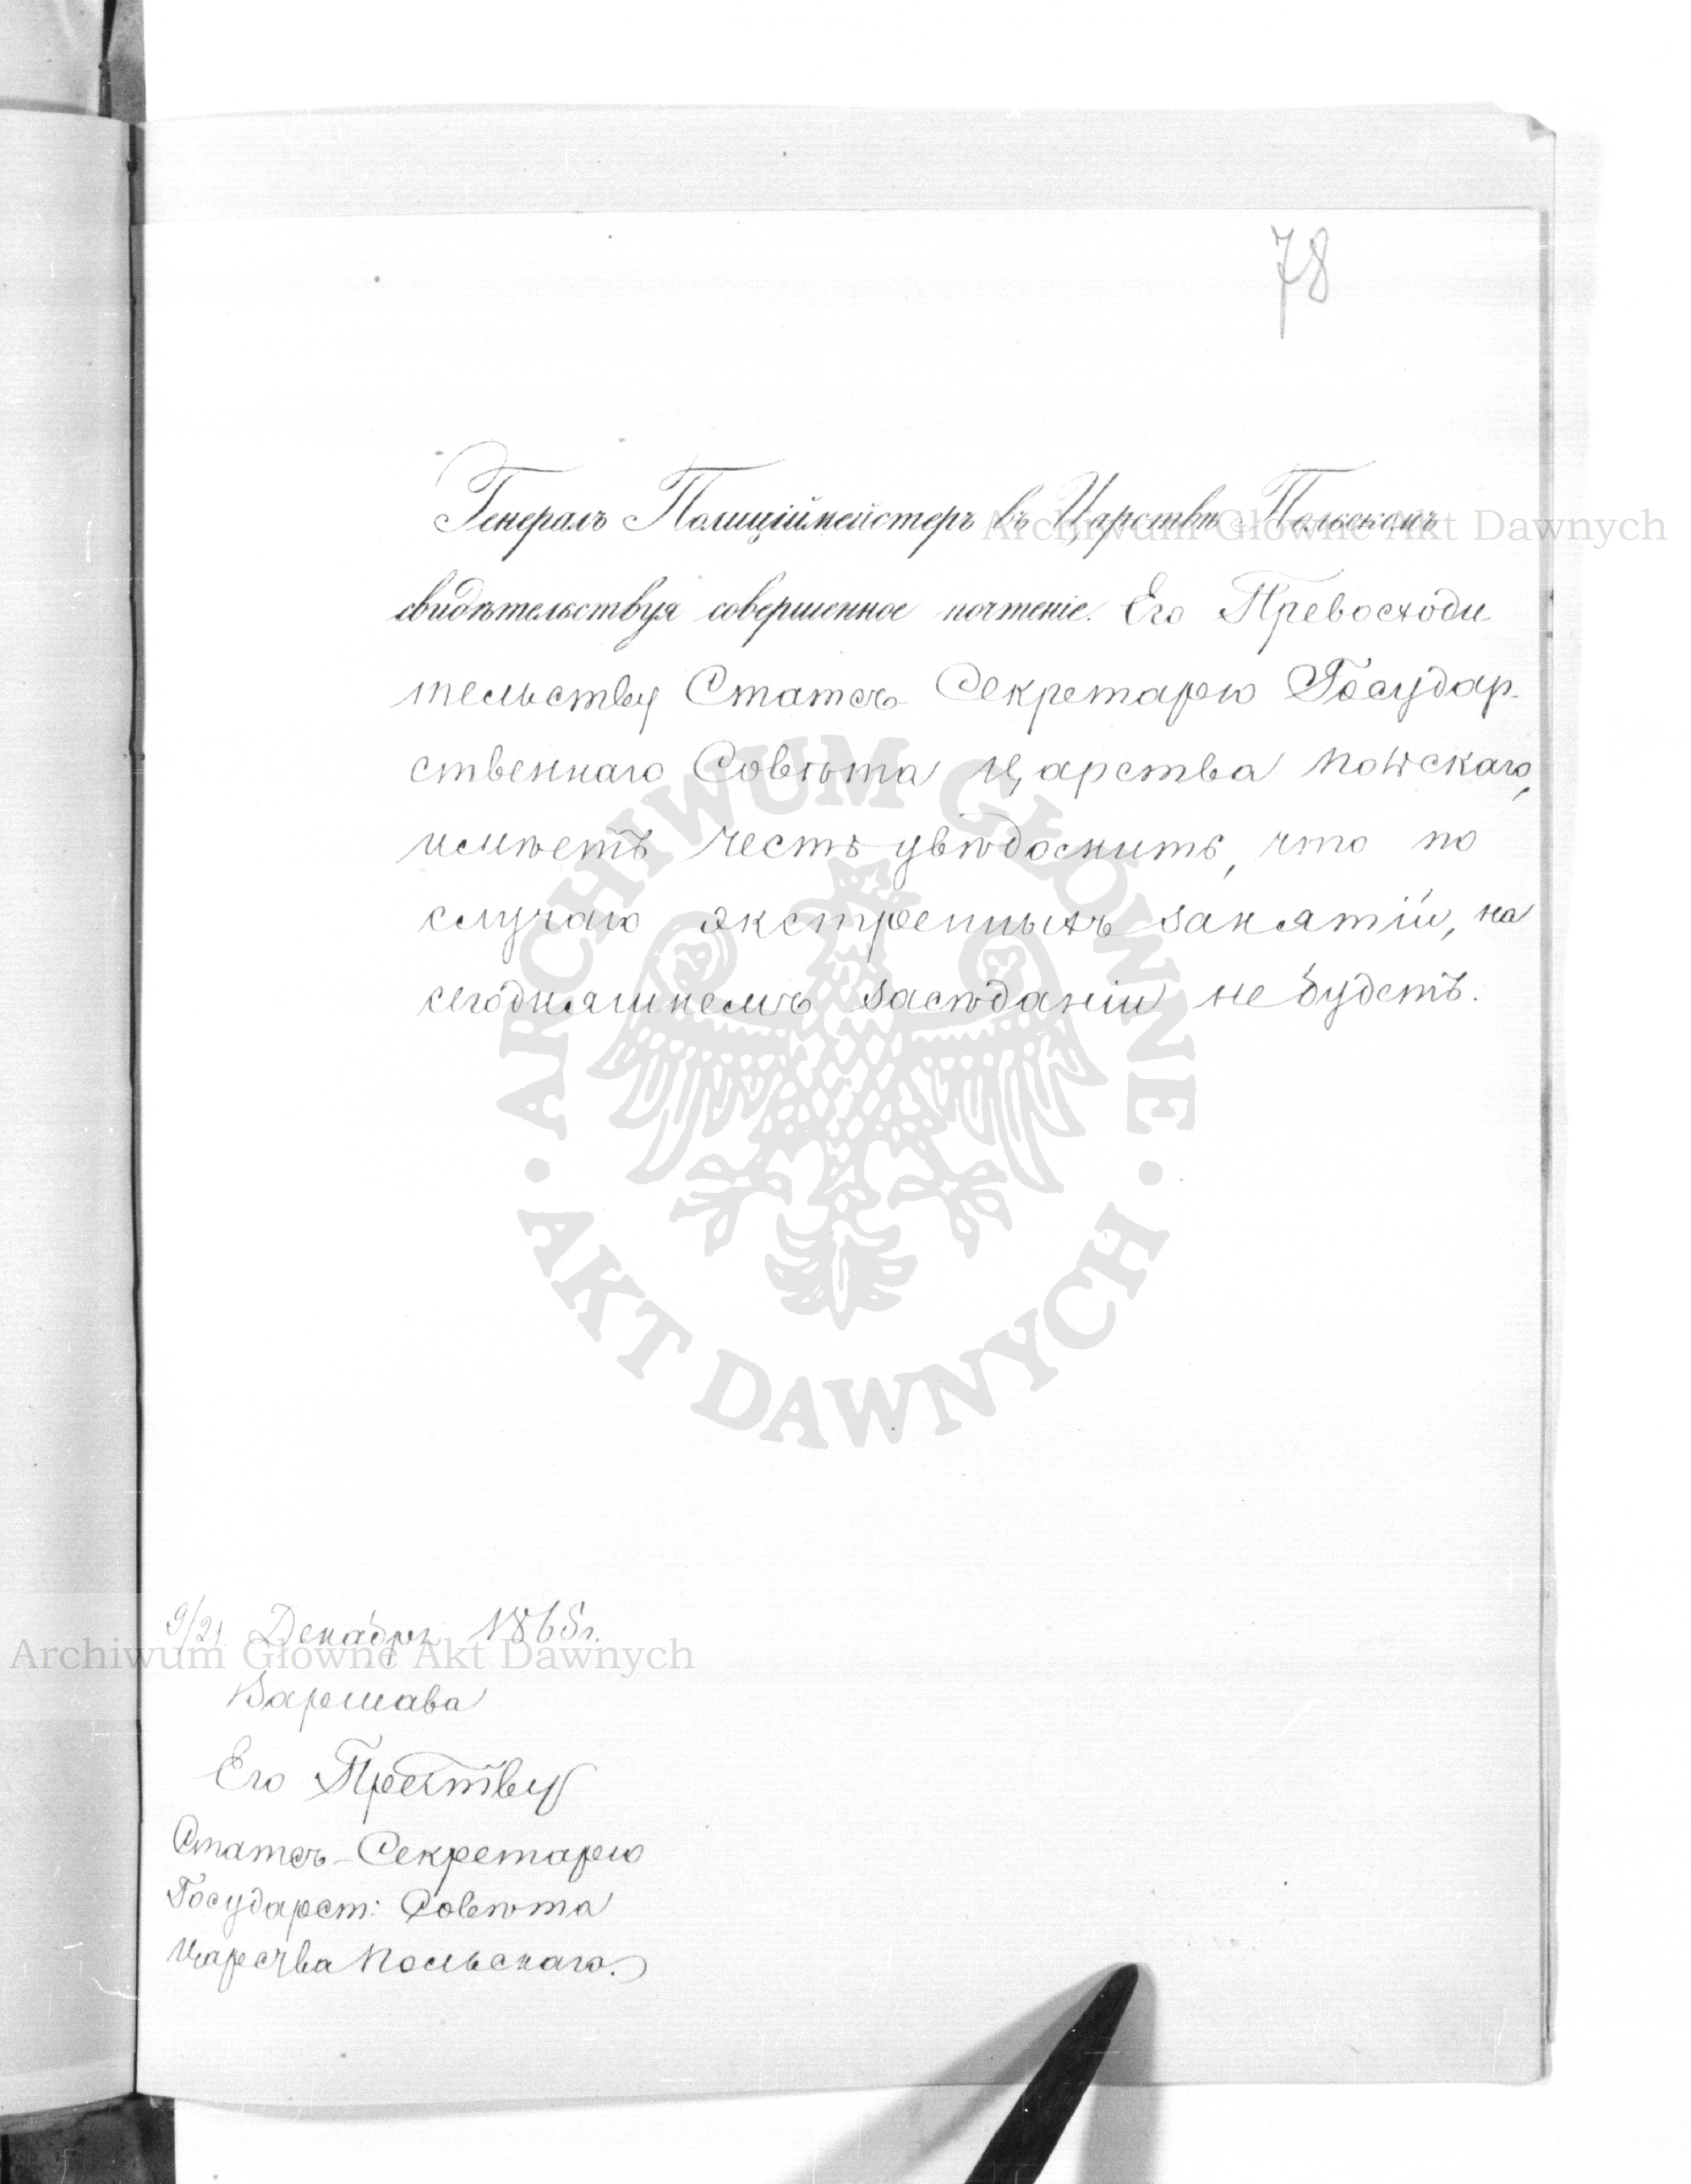 78
Генералъ Полиціймейстеръ въ Царствѣ Польскомъ
свидѣтельствуя совершенное почтеніе. Его Превосходи
тельству Статсъ-Секретарю Государ-
ственнаго Совѣта Царства Польскаго,
имѣетъ честь увѣдомить, что по
случаю экстренныхъ занятій, на
сегодняшнемъ засѣданіи не будетъ.
9/21 Декабря 1865 г.
Варшава
Его Пре-ству
Статсъ-Секретарю
Государст: Совѣта
Царства Польскаго.
Archiwum Główne Akt Dawnych
Archiwum Główne Akt Dawnych
ARCHIWUM GŁÓWNE · AKT DAWNYCH ·